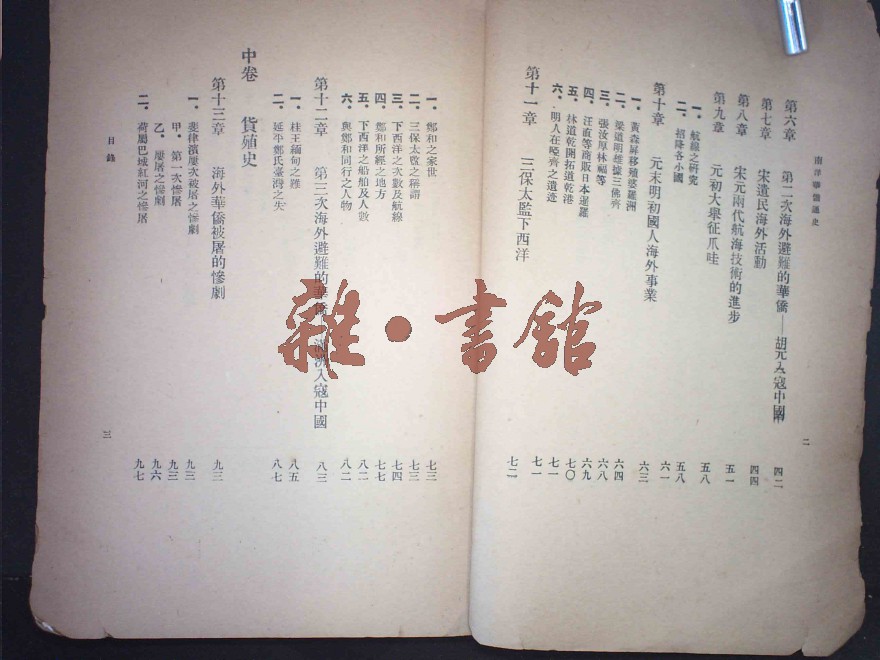 南洋華僑通史
二
第六章 第二次海外避難的華僑——胡元入寇中國 四二
第七章 宋遺民海外活動 四四
第八章 宋元兩代航海技術的進步 五一
第九章 元初大舉征爪哇 五八
一．航線之硏究 五八
二．招降各小國 六一
第十章 元末明初國人海外事業 六三
一．黃森屏移殖婆羅洲
二．梁道明雄據三佛齊 六四
三．張汝厚林福等 六八
四．汪直等商販日本暹羅 六九
五．林道乾開拓道乾港 七〇
六．明人在啞齊之遺迹 七一
第十一章 三保太監下西洋 七二
一．鄭和之家世 七三
二．三保太監之稱謂 七三
三．下西洋之次數及航線 七四
四．鄭和所經之地方 七七
五．下西洋之船舶及人數 八二
六．與鄭和同行之人物 八二
第十二章 第三次海外避難的華僑 滿洲入寇中國 八三
一．桂王緬甸之難 八五
二．延平鄭氏臺灣之失 八七
中卷 貨殖史
第十三章 海外華僑被屠的慘劇 九三
一．斐律濱屢次被屠之慘劇 九三
甲．第一次慘屠 九三
乙．屢屠之慘劇 九六
二．荷屬巴城紅河之慘屠 九七
目錄
三
雜·書館